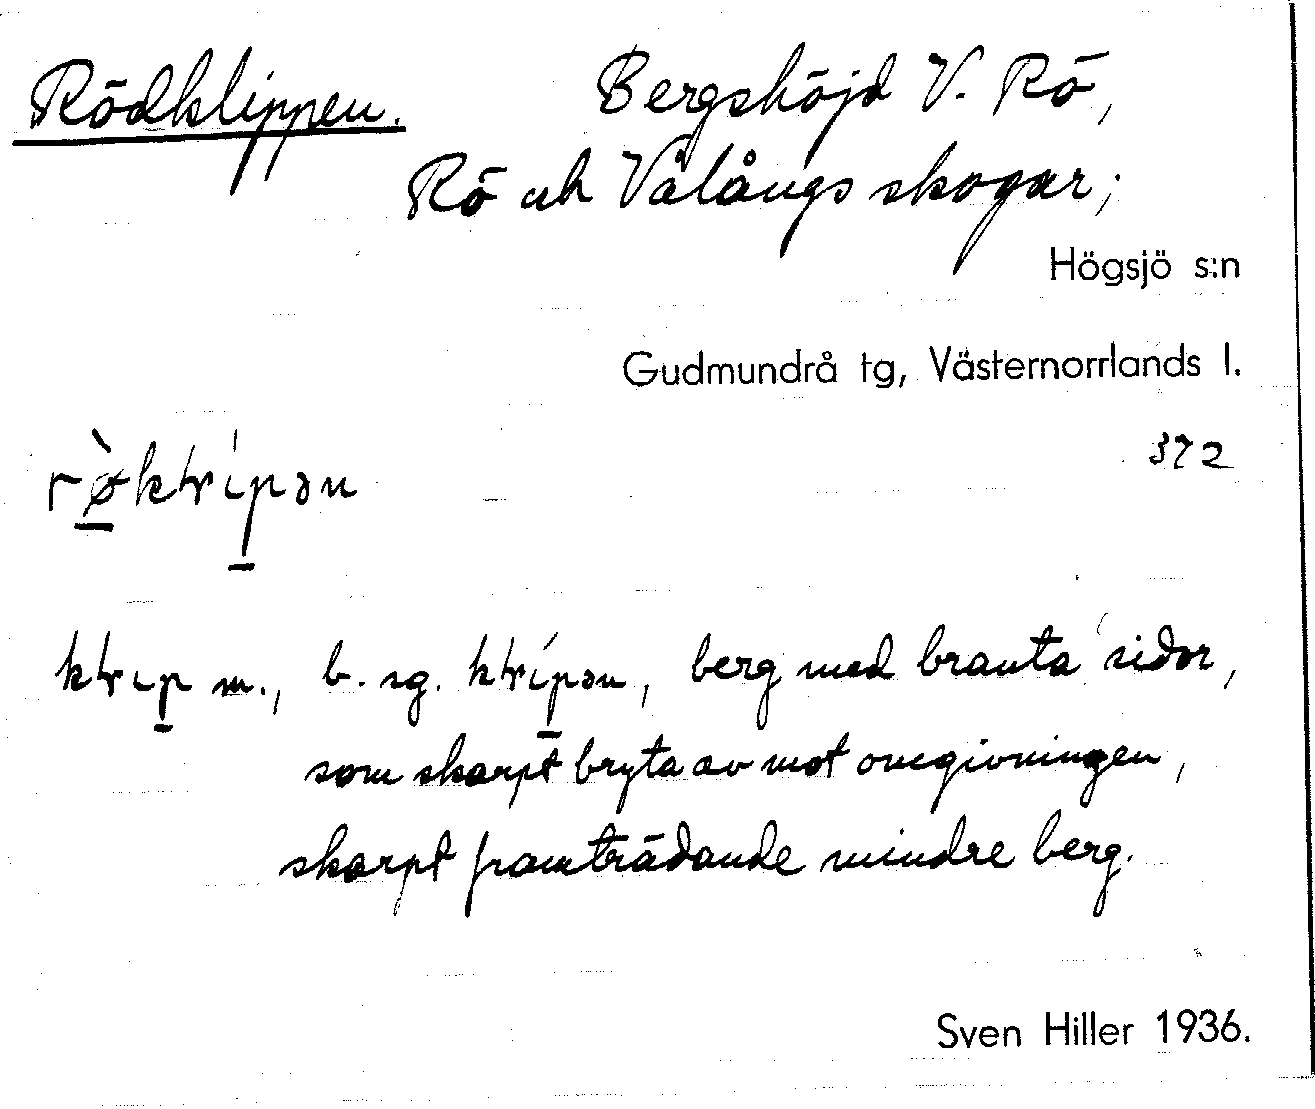 Rödklippen. Bergshöjd V. Rö,
Rö och Vålångs skogar;
Högsjö s:n
Gudmundrå tg, Västernorrlands l.
372
m., b. sg. berg med branta sidor,
som skarpt bryta av mot omgivningen,
skarpt framträdande mindre berg.
Sven Hiller 1936.